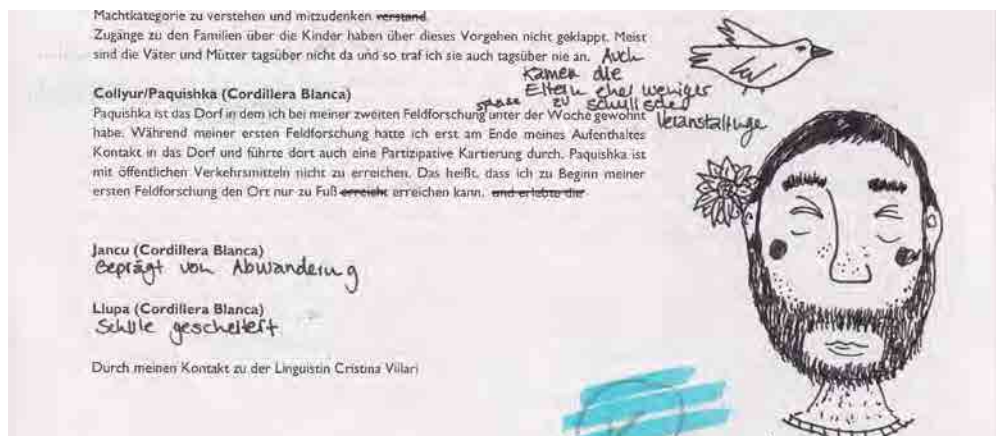 Machtkategorie zu verstehen und mitzudenken verstand.
Zugänge zu den Familien über die Kinder haben über dieses Vorgehen nicht geklappt. Meist
sind die Väter und Mütter tagsüber nicht da und so traf ich sie auch tagsüber nie an. Auch
kamen die
Eltern eher weniger
zu schulischen
Veranstaltunge
Collyur/Paquishka (Cordillera Blanca)
Paquishka ist das Dorf in dem ich bei meiner zweiten Feldforschung unter der Woche gewohnt
habe. Während meiner ersten Feldforschung hatte ich erst am Ende meines Aufenthaltes
Kontakt in das Dorf und führte dort auch eine Partizipative Kartierung durch. Paquishka ist
mit öffentlichen Verkehrsmitteln nicht zu erreichen. Das heißt, dass ich zu Beginn meiner
ersten Feldforschung den Ort nur zu Fuß erreicht erreichen kann. und erlebte die
Jancu (Cordillera Blanca)
Geprägt von Abwanderung
Llupa (Cordillera Blanca)
Schule gescheitert
Durch meinen Kontakt zu der Linguistin Cristina Villari